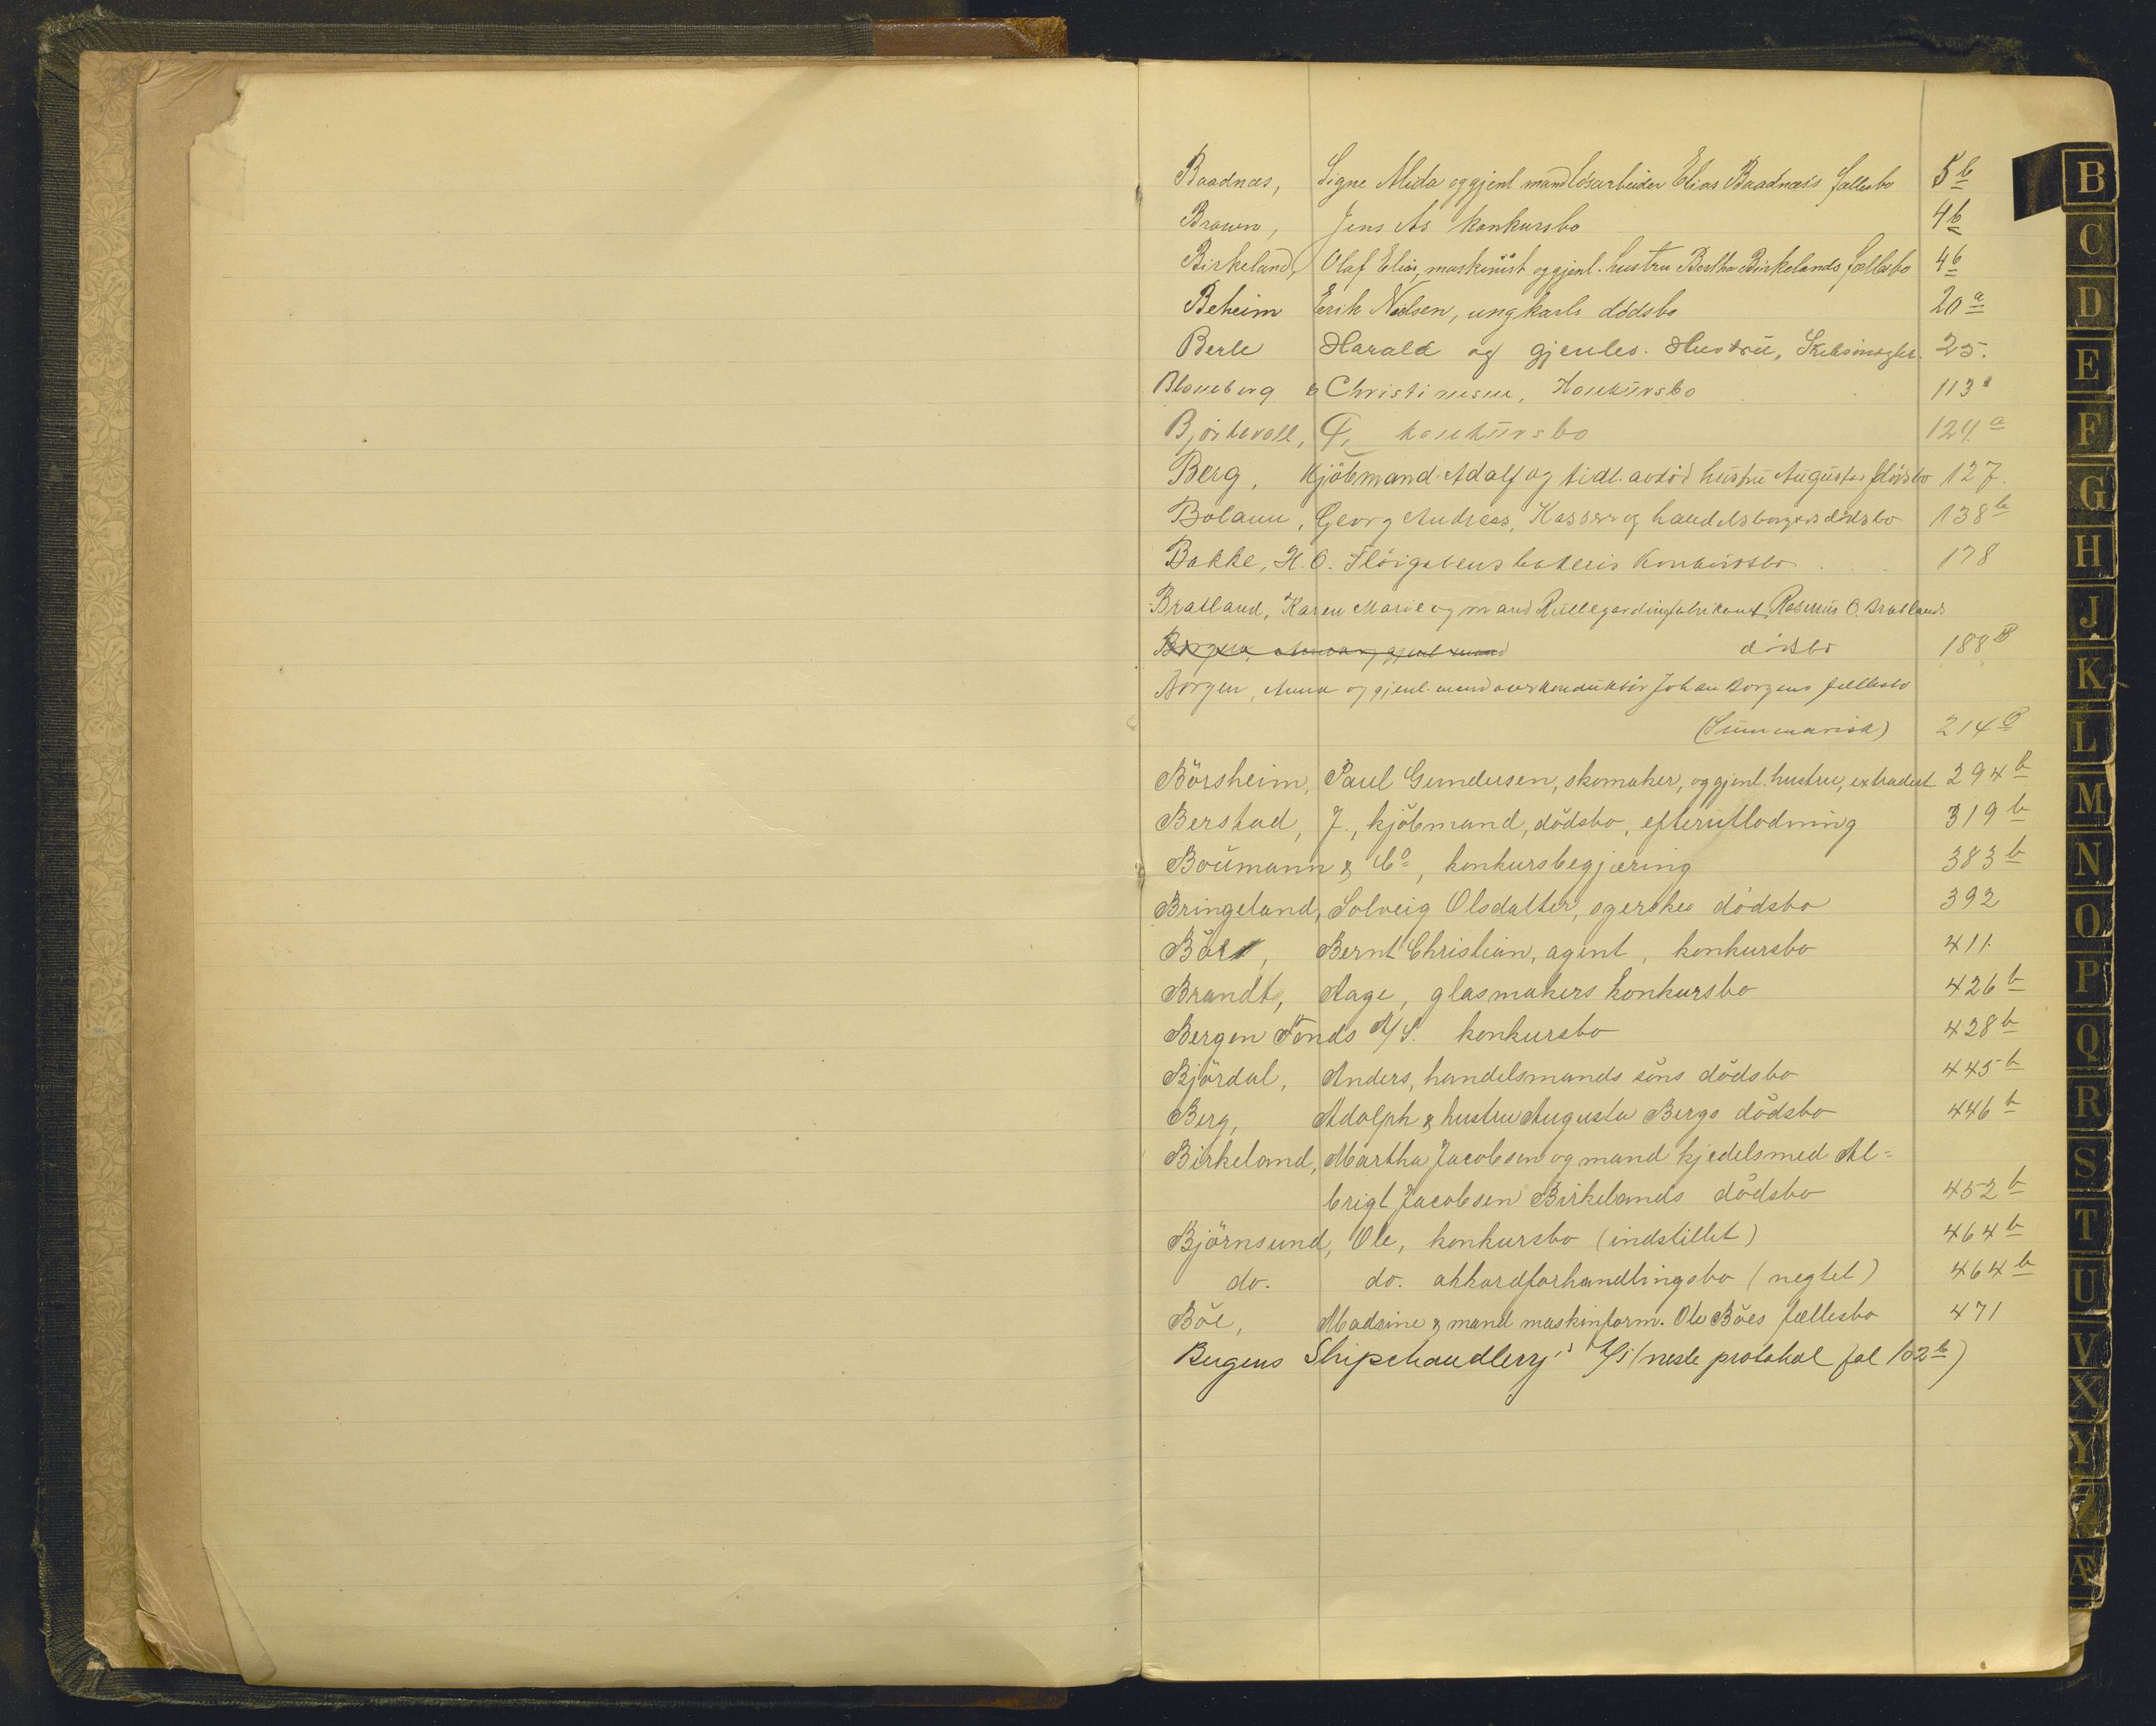 Baadnæs, Signe Alida og gjenl mand løsarbeider Elias Baadnæs's fællesbo 5b
Brown, Jens As konkursbo 4b
Birkeland, Olaf Elias, maskinist og gjenl. hustru Bertha Birkelands fællesbo 4b
Beheim Erik Nielsen, ungkarls dödsbo 20a
Berle Harald og gjenlev. Hustru, 25.
Blomberg & Christinesen, Konkursbo 113
Björkevoll, konkursbo 124a
Berg, Kjöbmand Adolf og tidl. avdöd hustru Augustas dödsbo 127.
Bolann, Georg Andreas, Kasserer og handelsborgers dödsbo 138b
Bakke, H. O. Flöigatens bakeris Konkursbo 178
Bratland, Karen Marie og mand Rullegardinfabrikant Rasmus O. Bratlands
Borgen, Anna og gjenl mand dödsbo 188B
Borgen, Anna og gjenl. mand overkonduktör Johan Borgens fællesbo
(Summarisk) 214B
Börsheim, Paul Gundersen, skomaker, og gjenl. hustru, extradert 294b
Berstad, J., kjöbmand, dödsbo, efterutlodning 319b
Boumann & Co, konkursbegjæring 383b
Bringeland, Solveig Olsdatter, sgerskes dödsbo 392
Böe, Bernt Christian, agent, konkursbo 411.
Brandt, Aage, glasmakers konkursbo 426b
Bergen Fonds A/S. konkursbo 428b
Björdal, Anders, handelsmands söns dödsbo 445b
Berg, Adolph & hustru Augusta Bergs dödsbo 446b
Birkeland, Martha Jacobsen og mand kjedelsmed Al=
brigt Jacobsen Birkelands dödsbo 452b
Björnsund, Ole, konkursbo (indstillet) 464b
do. do. akkordforhandlingsbo (negtet) 464b
Böe, Madsine & mand maskinform. Ole Böes fællesbo 471
Bergens Shipchandlery's A/S (neste protokol fol 102b)
B
C
D
E
F
G
H
J
K
L
M
N
O
P
Q
R
S
T
U
V
X
Y
Z
Æ